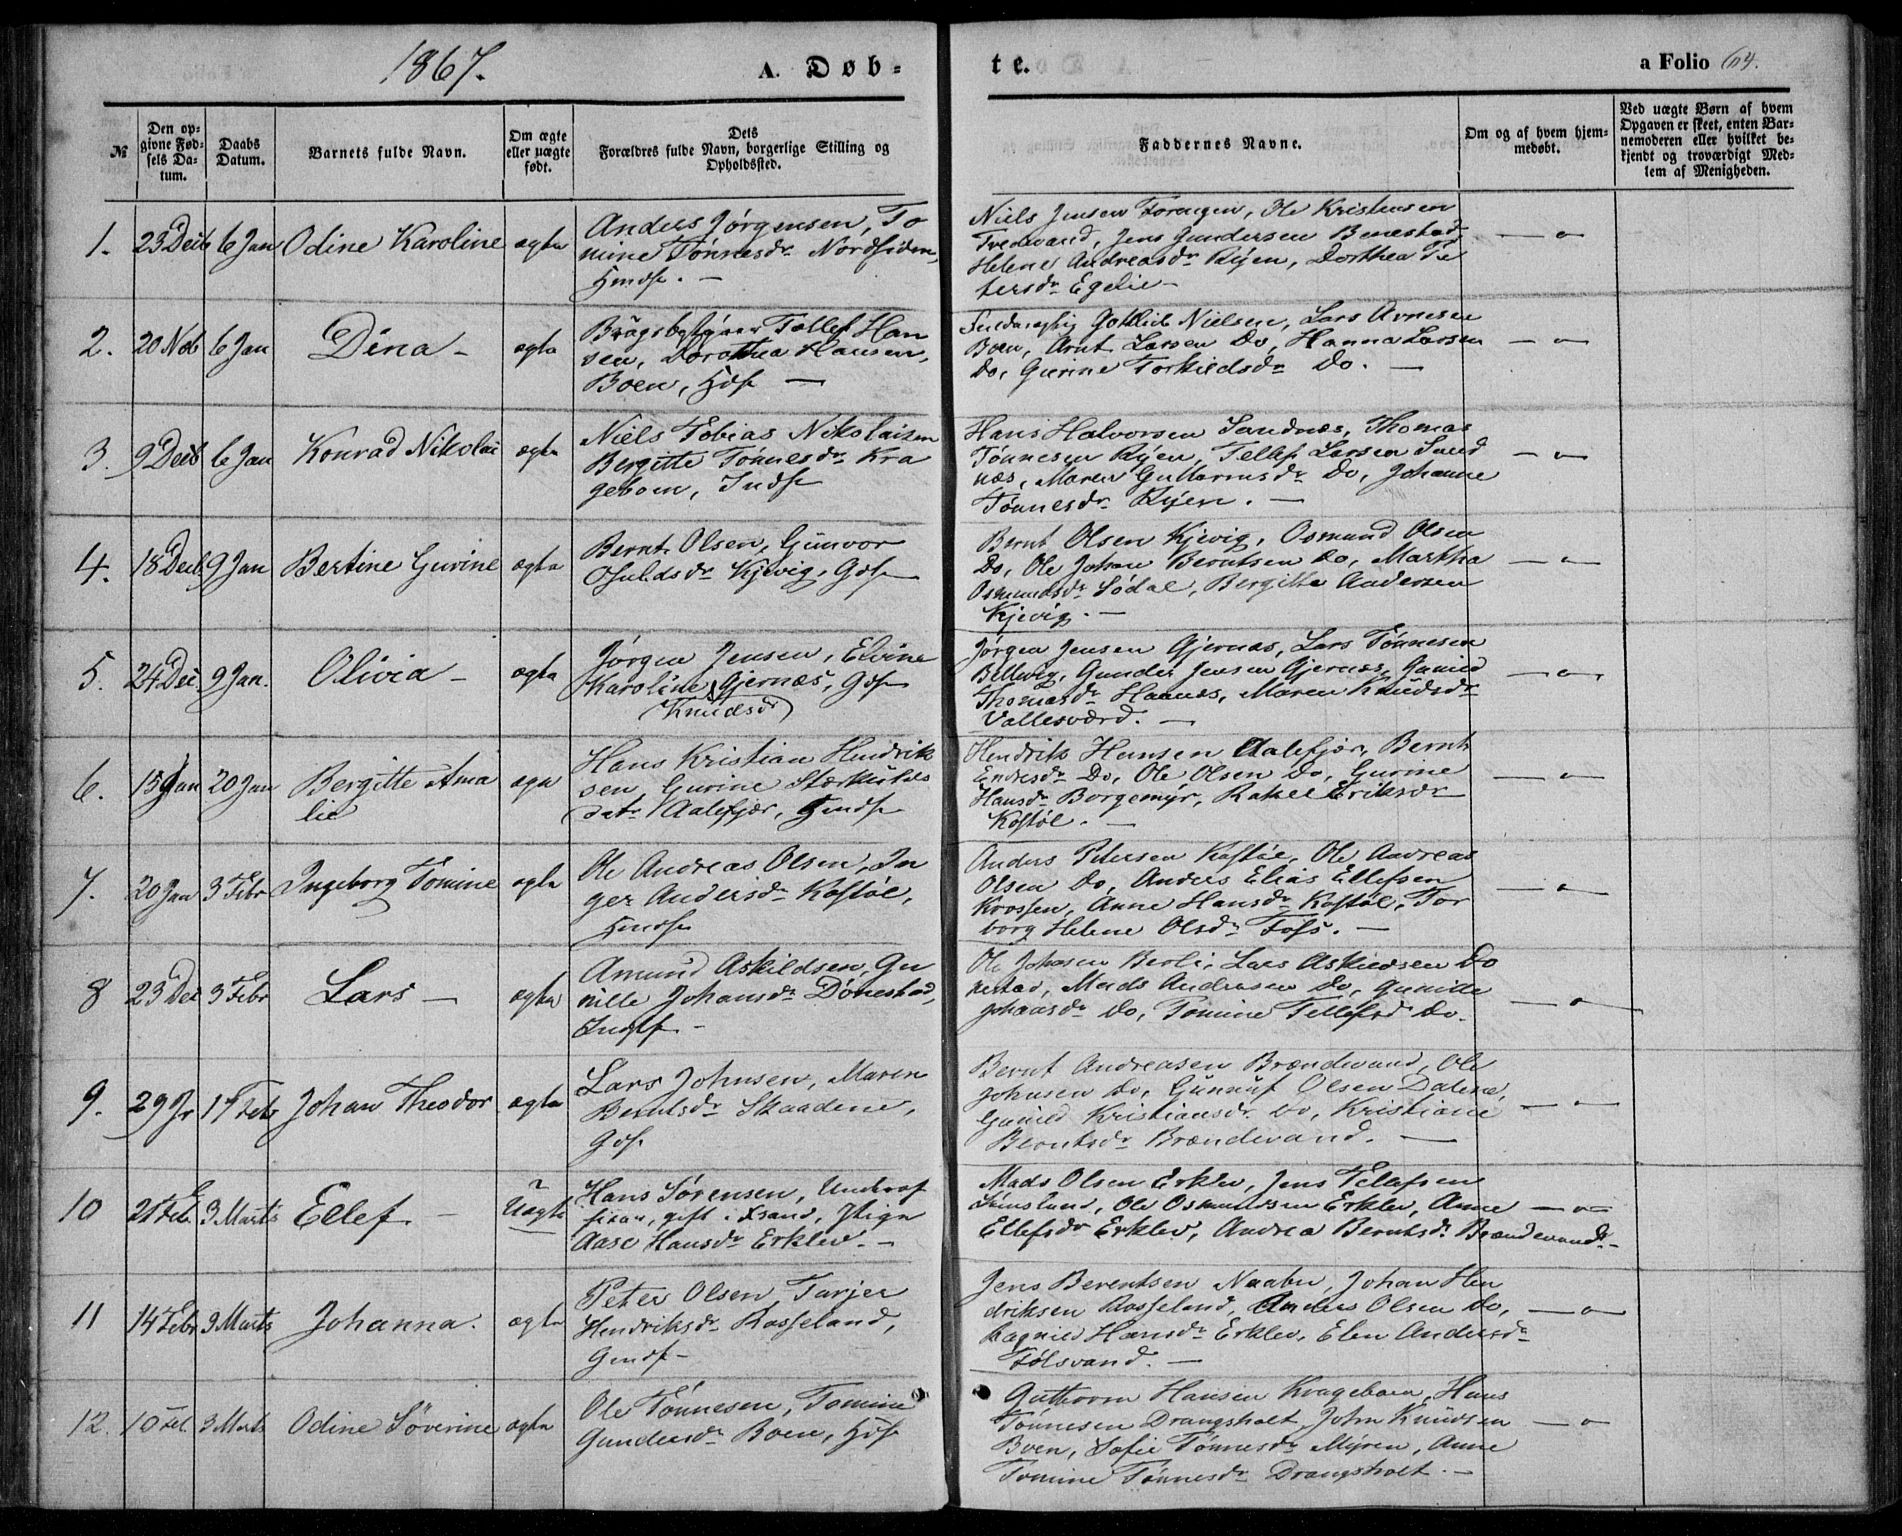 1867.
A. Døb=
te.
a Folio 64.
№
Den op=
givne Fød=
sels Da=
tum.
Daabs
Datum.
Barnets fulde Navn.
Om ægte
eller uægte
født.
Dets
Forældres fulde Navn, borgerlige Stilling og
Opholdssted.
Faddernes Navne.
Om og af hvem hjem=
medøbt.
Ved uægte Børn af hvem
Opgaven er skeet, enten Bar=
nemoderen eller hvilket be=
kjendt og troværdigt Med=
lem af Menigheden.
1. 23 Decb 6 Jan Odine Karoline ægta
Anders Jørgensen, To
mine Tønnesdr Nordsiden,
Hmdsf. —
Niels Jensen Forengen, Ole Kristensen
Tvedvand, Jens Gundersen Benestad,
Helene Andreasdr Ryen, Dorthea Pe
tersdr Egelie —
2. 20 Nob 6 Jan Dina — ægta
Tellef Han
sen, Dorothea Hansen,
Boen, Hdsf —
Gotlieb Nielsen, Lars Arnesen
Boen, Arnt Larsen Do, Hanna Larsen
Do, Gunne Torkildsdr Do. —
3. 9 Decb 6 Jan Konrad Nikolai ægta
Niels Tobias Nikolaisen
Bergitte Tønnesdr Kra
geboen, Indsf
Hans Halvorsen Sandnæs, Thomas
Tønnesen Ryen, Tellef Larsen Sand
næs, Maren Guttormsdr Do, Johanne
Tønnesdr Ryen. —
4. 18 Decb 9 Jan Bertine Gurine ægta
Bernt Olsen, Gunvor
Osuldsdr Kjevig, Gdsf
Bernt Olsen Kjevig, Osmund Olsen
Do, Ole Johan Berntsen Do, Martha
Osmundsdr Sødal, Bergitte Andersen
Kjevig. —
5. 24 Dec. 9 Jan. Olivia — ægta
Jørgen Jensen, Elvine
Karoline Gjernæs, Gdsf
(Knudsdr)
Jørgen Jensen Gjernæs, Lars Tønnesen
Bellevig, Gunder Jensen Gjernæs, Gunild
Thomasdr Haanes, Maren Knudsdr
Vallesværd. —
6. 15 Jan 20 Jan Bergitte Ama
lie
Hans Kristian Hendrik
sen, Gurine Stærkulds
datr Aalefjær, Hmdsf
Hendrik Hansen Aalefjær, Bernt
Endresdr Do, Ole Olsen Do, Gurine
Hansdr Borgemyr, Rakel Eriksdr
Kostøl. —
7. 20 Jan 3 Febr Ingeborg Tomine ægta
Ole Andreas Olsen, In
ger Andersdr Kostøl,
Hmdsf
Anders Petersen Kostøl, Ole Andreas
Olsen Do, Anders Elias Ellefsen
Krossen, Anne Hansdr Kostøl, Tor
borg Helene Olsdr Foss. —
8 23 Dec 3 Febr Lars — ægta
Amund Askildsen, Gu
nille Johansdr Dønestad,
Indsf —
Ole Johnsen Berli, Lars Askildsen Dø
nestad, Mads Andersen Do, Gunilde
Johansdr Do, Tomine Tellefsd Do.
9. 29 Jr 17 Feb Johan Theodor ægta
Lars Johnsen, Maren
Berntsdr Skaadene,
Gdsf.
Bernt Andreasen Brændevand, Ole
Johnsen Do, Gunnuf Olsen Dalene,
Gunild Kristiansdr Do, Kristiane
Berntsdr Brændevand. —
10 21 Feb 3 Marts Ellef. — Uægta
Hans Sørensen, Underof
ficer, gift i Krsand, Pige
Aase Hansdr Erklev. —
Mads Olsen Erklev, Jens Tellefsen
Ole Osmundsen Erklev, Anne
Ellefsdr Erklev, Andrea Berntsdr Brændevand —
11 14 Febr 3 Marts Johanna. ægta
Peter Olsen, Tarjer
Hendriksdr Rosseland,
Gmdsf —
Jens Berentsen Naabu, Johan Hen
driksen Rosseland, Anders Olsen Do,
Ragnild Hansdr Erklev, Elen Andersdr
Følsvand. —
12. 10 Feb 3 Marts Odine Söverine ægta
Ole Tønnesen, Tomine
Gundersdr Boen, Hdsf
Guttorm Hansen Krageboen, Hans
Tønnesen Drangsholt, John Knudsen
Boen, Sofie Tønnesdr Myren, Anne
Tomine Tønnesdr Drangsholt. —